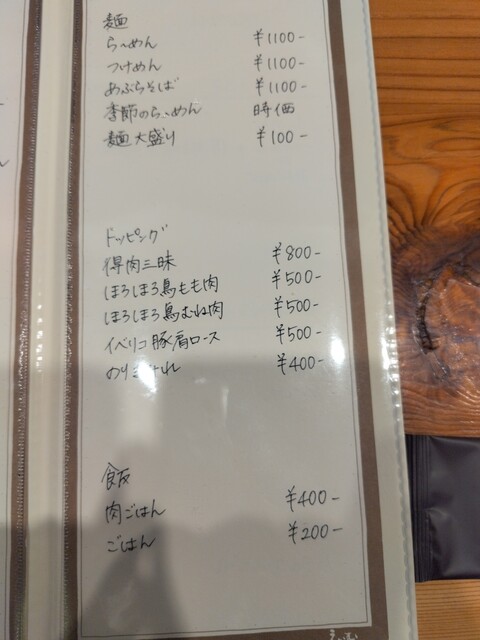 麺
らーめん ¥1100-
つけめん ¥1100-
あぶらそば ¥1100-
季節のらーめん 時価
麺大盛り ¥100-
トッピング
得肉三昧 ¥800-
ほろほろ鳥もも肉 ¥500-
ほろほろ鳥むね肉 ¥500-
イベリコ豚肩ロース ¥500-
¥400-
食反
肉ごはん ¥400-
ごはん ¥200-